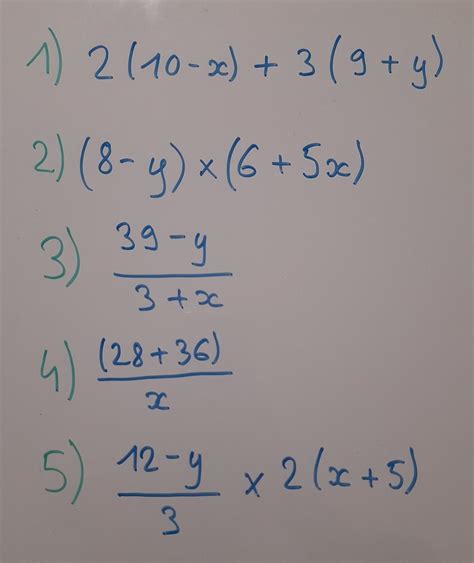 1) 2(10-x) + 3(9+y)
2) (8-y)×(6+5x)
3) 39-y / 3+x
4) (28+36) / x
5) 12-y / 3 × 2(x+5)